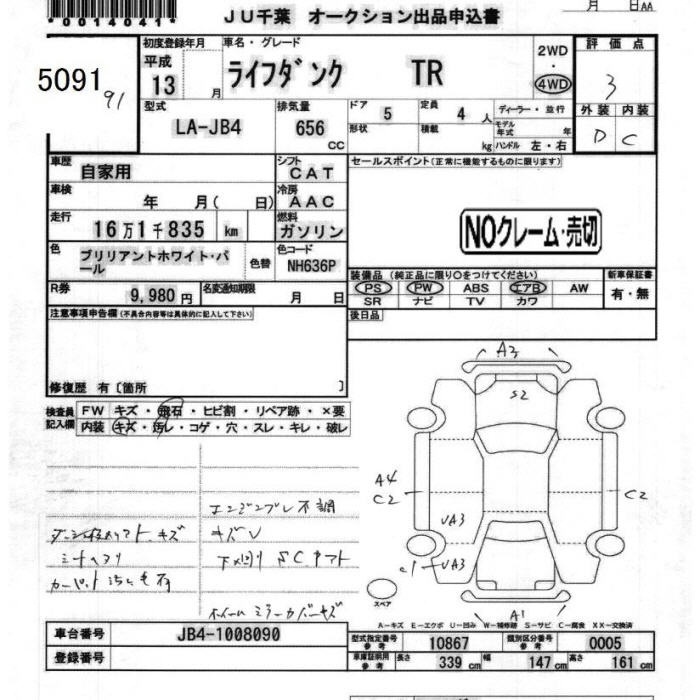 *0014041*
JU千葉 オークション出品申込書
月 日AA
5091
91
初度登録年月
平成
13 月
車名・グレード
ライフダンク TR
2WD
・
4WD
評価点
3
外装 内装
D C
型式
LA-JB4
排気量
656
cc
ドア 5
形状
定員 4 人
積載 kg
ディーラー・並行
モデル年式 年
ハンドル 左・右
車歴
自家用
シフト
CAT
車検
年 月(日)
冷房
AAC
走行
16万1千835 km
燃料
ガソリン
色
ブリリアントホワイト・パール
色替
色コード
NH636P
R券
9,980 円
名変通知期限
月 日
セールスポイント(正常に機能するものに限ります)
NOクレーム・売切
装備品 (純正品に限り〇をつけてください)
PS PW ABS エアB AW
SR ナビ TV カワ
新車保証書
有・無
後日品
注意事項申告欄(不具合内容等は具体的に記入して下さい)
修復歴 有〔箇所 〕
検査員記入欄
FW キズ・飛石・ヒビ割・リペア跡・×要
内装 キズ・汚レ・コゲ・穴・スレ・キレ・破レ
エンジンブレ不調
キズ
シートヘタリ
下廻り SC
ホイール ミラーカバーキズ
A3
S2
A4
C2
C2
UA3
UA3
C1
A1
スペア
A-キズ E-エクボ U-凹み W-補修跡 S-サビ C-腐食 XX-交換済
車台番号 JB4-1008090
登録番号
型式指定番号 参考 10867
類別区分番号 参考 0005
車庫証明用 参考 長さ 339 cm 幅 147 cm 高さ 161 cm